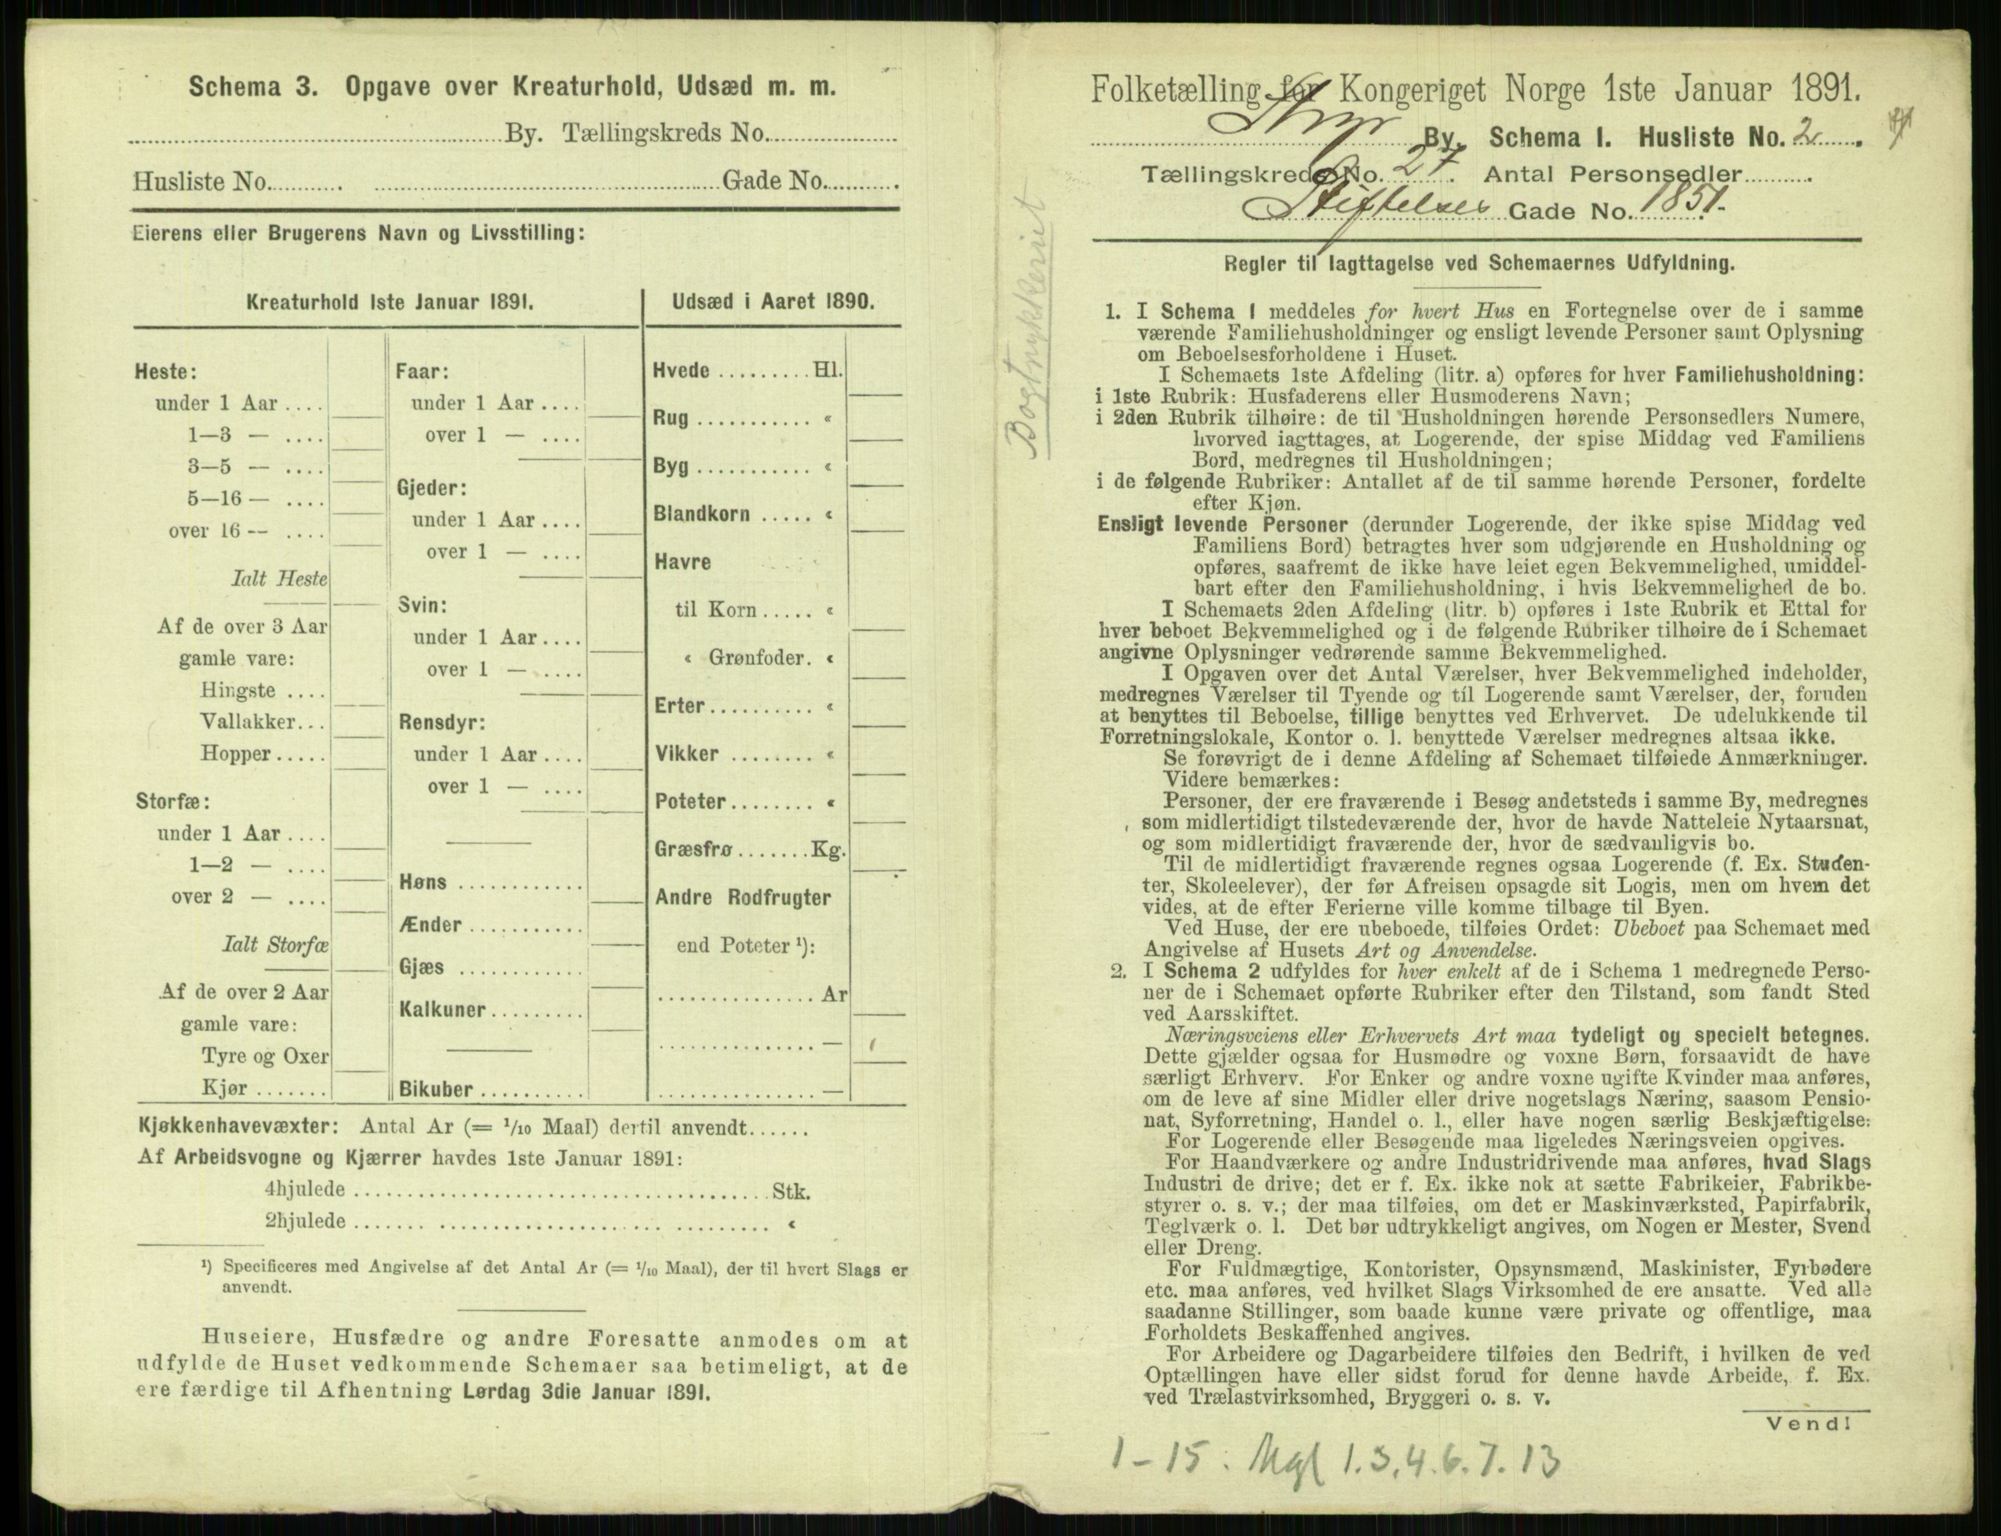 Schema 3. Opgave over Kreaturhold, Udsæd m. m.
By. Tællingskreds No.
Husliste No. Gade No.
Eierens eller Brugerens Navn og Livsstilling:
Kreaturhold 1ste Januar 1891.
Heste:
under 1 Aar
1—3 —
3—5 —
5—16 —
over 16 —
Ialt Heste
Af de over 3 Aar
gamle vare:
Hingste
Vallakker
Hopper
Storfæ:
under 1 Aar
1—2 —
over 2 —
Ialt Storfæ
Af de over 2 Aar
gamle vare:
Tyre og Oxer
Kjør
Faar:
under 1 Aar
over 1 —
Gjeder:
under 1 Aar
over 1 —
Svin:
under 1 Aar
over 1 —
Rensdyr:
under 1 Aar
over 1 —
Høns
Ænder
Gjæs
Kalkuner
Bikuber
Udsæd i Aaret 1890.
Hvede Hl.
Rug «
Byg «
Blandkorn «
Havre
til Korn «
« Grønfoder. «
Erter «
Vikker «
Poteter «
Græsfrø Kg.
Andre Rodfrugter
end Poteter ¹):
Ar
—
—
Kjøkkenhavevæxter: Antal Ar (= 1/10 Maal) dertil anvendt
Af Arbeidsvogne og Kjærrer havdes 1ste Januar 1891:
4hjulede Stk.
2hjulede «
¹) Specificeres med Angivelse af det Antal Ar (= 1/10 Maal), der til hvert Slags er
anvendt.
Huseiere, Husfædre og andre Foresatte anmodes om at
udfylde de Huset vedkommende Schemaer saa betimeligt, at de
ere færdige til Afhentning Lørdag 3die Januar 1891.
Bogtrykkeriet
Folketælling for Kongeriget Norge 1ste Januar 1891.
By. Schema I. Husliste No. 2
Tællingskreds No. 27. Antal Personsedler
Stiftelses Gade No. 1851.
Regler til Iagttagelse ved Schemaernes Udfyldning.
1. I Schema I meddeles for hvert Hus en Fortegnelse over de i samme
værende Familiehusholdninger og ensligt levende Personer samt Oplysning
om Beboelsesforholdene i Huset.
I Schemaets 1ste Afdeling (litr. a) opføres for hver Familiehusholdning:
i 1ste Rubrik: Husfaderens eller Husmoderens Navn;
i 2den Rubrik tilhøire: de til Husholdningen hørende Personsedlers Numere,
hvorved iagttages, at Logerende, der spise Middag ved Familiens
Bord, medregnes til Husholdningen;
i de følgende Rubriker: Antallet af de til samme hørende Personer, fordelte
efter Kjøn.
Ensligt levende Personer (derunder Logerende, der ikke spise Middag ved
Familiens Bord) betragtes hver som udgjørende en Husholdning og
opføres, saafremt de ikke have leiet egen Bekvemmelighed, umiddel-
bart efter den Familiehusholdning, i hvis Bekvemmelighed de bo.
I Schemaets 2den Afdeling (litr. b) opføres i 1ste Rubrik et Ettal for
hver beboet Bekvemmelighed og i de følgende Rubriker tilhøire de i Schemaet
angivne Oplysninger vedrørende samme Bekvemmelighed.
I Opgaven over det Antal Værelser, hver Bekvemmelighed indeholder,
medregnes Værelser til Tyende og til Logerende samt Værelser, der, foruden
at benyttes til Beboelse, tillige benyttes ved Erhvervet. De udelukkende til
Forretningslokale, Kontor o. l. benyttede Værelser medregnes altsaa ikke.
Se forøvrigt de i denne Afdeling af Schemaet tilføiede Anmærkninger.
Videre bemærkes:
Personer, der ere fraværende i Besøg andetsteds i samme By, medregnes
som midlertidigt tilstedeværende der, hvor de havde Natteleie Nytaarsnat,
og som midlertidigt fraværende der, hvor de sædvanligvis bo.
Til de midlertidigt fraværende regnes ogsaa Logerende (f. Ex. Studen-
ter, Skoleelever), der før Afreisen opsagde sit Logis, men om hvem det
vides, at de efter Ferierne ville komme tilbage til Byen.
Ved Huse, der ere ubeboede, tilføies Ordet: Ubeboet paa Schemaet med
Angivelse af Husets Art og Anvendelse.
2. I Schema 2 udfyldes for hver enkelt af de i Schema 1 medregnede Perso-
ner de i Schemaet opførte Rubriker efter den Tilstand, som fandt Sted
ved Aarsskiftet.
Næringsveiens eller Erhvervets Art maa tydeligt og specielt betegnes.
Dette gjælder ogsaa for Husmødre og voxne Børn, forsaavidt de have
særligt Erhverv. For Enker og andre voxne ugifte Kvinder maa anføres,
om de leve af sine Midler eller drive nogetslags Næring, saasom Pensio-
nat, Syforretning, Handel o. l., eller have nogen særlig Beskjæftigelse:
For Logerende eller Besøgende maa ligeledes Næringsveien opgives.
For Haandværkere og andre Industridrivende maa anføres, hvad Slags
Industri de drive; det er f. Ex. ikke nok at sætte Fabrikeier, Fabrikbe-
styrer o. s. v.; der maa tilføies, om det er Maskinværksted, Papirfabrik,
Teglværk o. l. Det bør udtrykkeligt angives, om Nogen er Mester, Svend
eller Dreng.
For Fuldmægtige, Kontorister, Opsynsmænd, Maskinister, Fyrbødere
etc. maa anføres, ved hvilket Slags Virksomhed de ere ansatte. Ved alle
saadanne Stillinger, som baade kunne være private og offentlige, maa
Forholdets Beskaffenhed angives.
For Arbeidere og Dagarbeidere tilføies den Bedrift, i hvilken de ved
Optællingen have eller sidst forud for denne havde Arbeide, f. Ex.
ved Trælastvirksomhed, Bryggeri o. s. v.
Vend!
1-15: Mgl 1.3,4.6.7.13